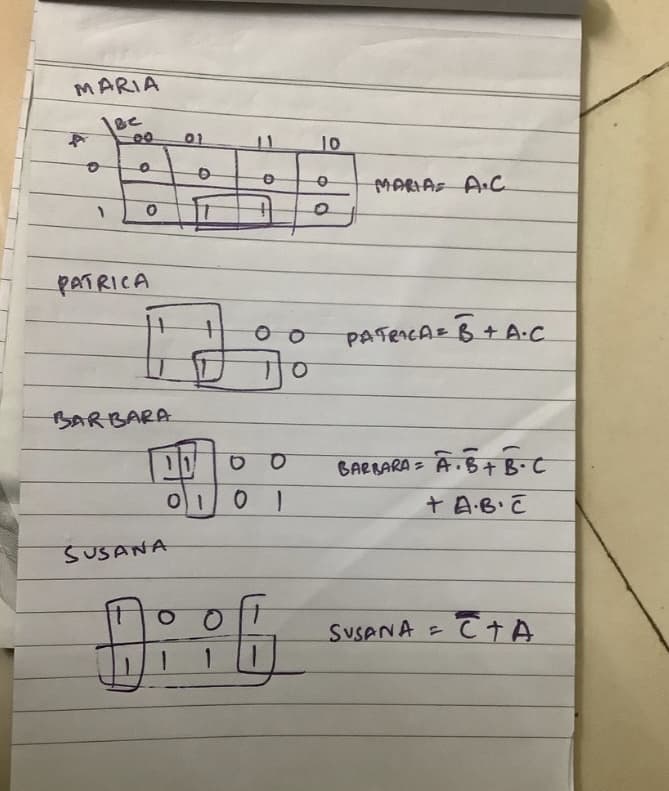 MARIA
BC
A 00 01 11 10
0 0 0 0 0 MARIA= A.C
1 0 1 1 0
PATRICA
1 1 0 0 PATRICA= B̅ + A.C
1 1 1 0
BARBARA
1 1 0 0 BARBARA= A̅.B̅ + B̅.C
0 1 0 1 + A.B.C̅
SUSANA
1 0 0 1 SUSANA = C̅ + A
1 1 1 1